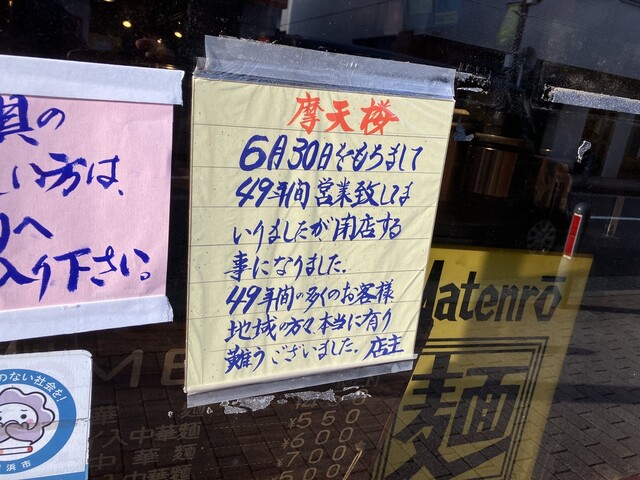 摩天楼
6月30日をもちまして
49年間営業致してま
いりましたが閉店する
事になりました.
49年間の多くのお客様
地域の方々本当に有り
難うございました. 店主
員の
い方は、
へ
入り下さい。
Matenrō
麺
ME
中華麺
¥550
¥600
¥700
のない社会を!
浜市